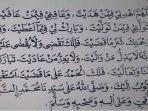 اللهم اهدني فيمن هديت، وعافني فيمن عافيت
وتولني فيمن توليت، وبارك لي فيما أعطيت
شر ما قضيت، فإنك تقضي ولا يقضى
لا يذل من واليت، ولا يعز من عاديت
وتعاليت، فلك الحمد على ما قضيت
وأتوب إليك، وصلى الله على سيدنا محمد
وعلى آله وصحبه وسلم